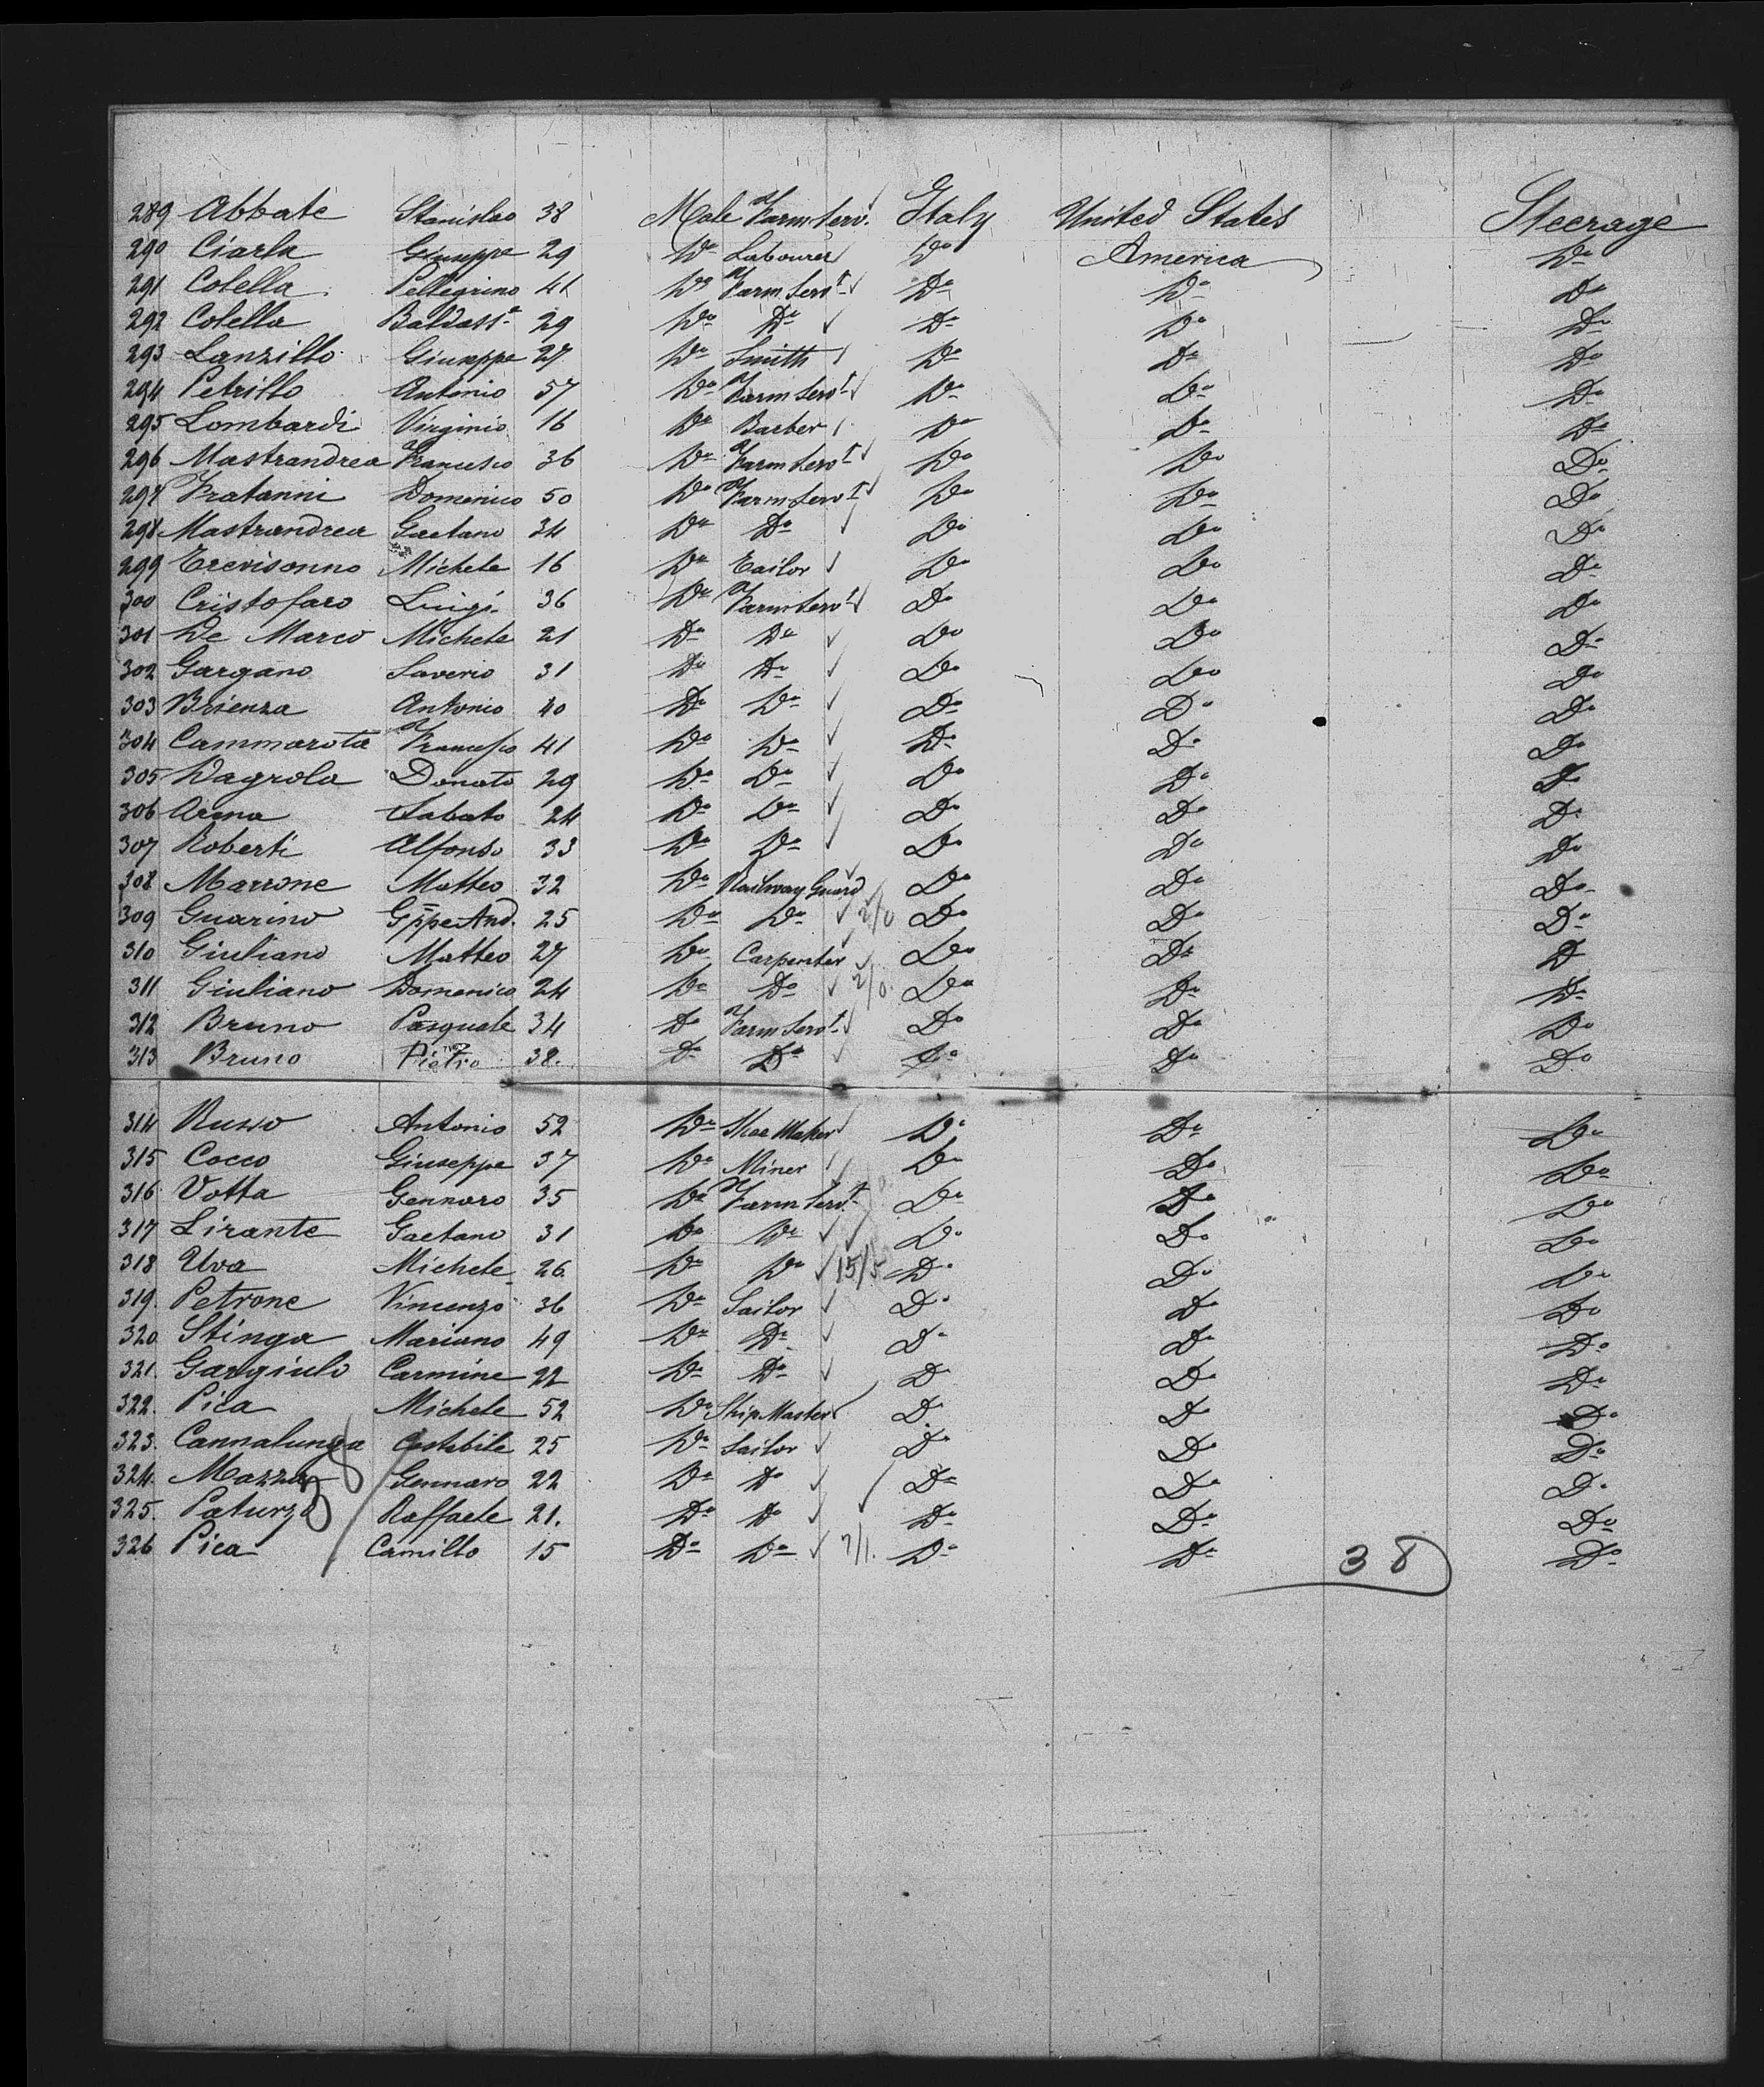 289 Abbate Stanislao 38 Male Farm Serv. Italy United States Steerage
290 Ciarla Giuseppe 29 Do Labourer Do America Do
291 Colella Pellegrino 41 Do Farm Servt Do Do Do
292 Colella Baldasse 29 Do Do Do Do Do
293 Lanzillo Giuseppe 27 Do Smith Do Do Do
294 Petrillo Antonio 57 Do Farm Servt Do Do Do
295 Lombardi Virginio 16 Do Barber Do Do Do
296 Mastrandrea Francesco 36 Do Farm Servt Do Do Do
297 Fratanni Domenico 50 Do Farm Servt Do Do Do
298 Mastrandrea Gaetano 34 Do Do Do Do Do
299 Trevisonno Michele 16 Do Tailor Do Do Do
300 Cristofaro Luigi 36 Do Farm Servt Do Do Do
301 De Marco Michele 21 Do Do Do Do Do
302 Gargano Saverio 31 Do Do Do Do Do
303 Brienza Antonio 40 Do Do Do Do Do
304 Cammarota Francesco 41 Do Do Do Do Do
305 Dagrola Donato 29 Do Do Do Do Do
306 Arena Sabato 24 Do Do Do Do Do
307 Roberti Alfonso 33 Do Do Do Do Do
308 Marrone Matteo 32 Do Railway Guard Do Do Do
309 Guarino Gppe And. 25 Do Do 2/0 Do Do Do
310 Giuliano Matteo 27 Do Carpenter Do Do D
311 Giuliano Domenico 24 Do Do 2/0. Do Do Do
312 Bruno Pasquale 34 Do Farm Servt Do Do Do
313 Bruno Pietro 38. Do Do Do Do Do
314 Russo Antonio 52 Do Shoe Maker Do Do Do
315 Cocco Giuseppe 37 Do Miner Do Do Do
316 Votta Gennaro 35 Do Farm Servt Do Do Do
317 Lirante Gaetano 31 Do Do Do Do Do
318 Uva Michele 26. Do Do 15/5 Do Do Do
319. Petrone Vincenzo 36 Do Sailor Do Do Do
320 Stinga Mariano 49 Do Do Do Do Do
321. Gargiulo Carmine 22 Do Do Do Do Do
322. Pica Michele 52 Do Ship Master Do Do Do
323. Cannalunga Costabile 25 Do Sailor Do Do Do
324. Mazza Gennaro 22 Do Do Do Do Do
325. Paturzo Raffaele 21. Do Do Do Do Do
326 Pica Camillo 15 Do Do 7/1. Do Do 38 Do
38/